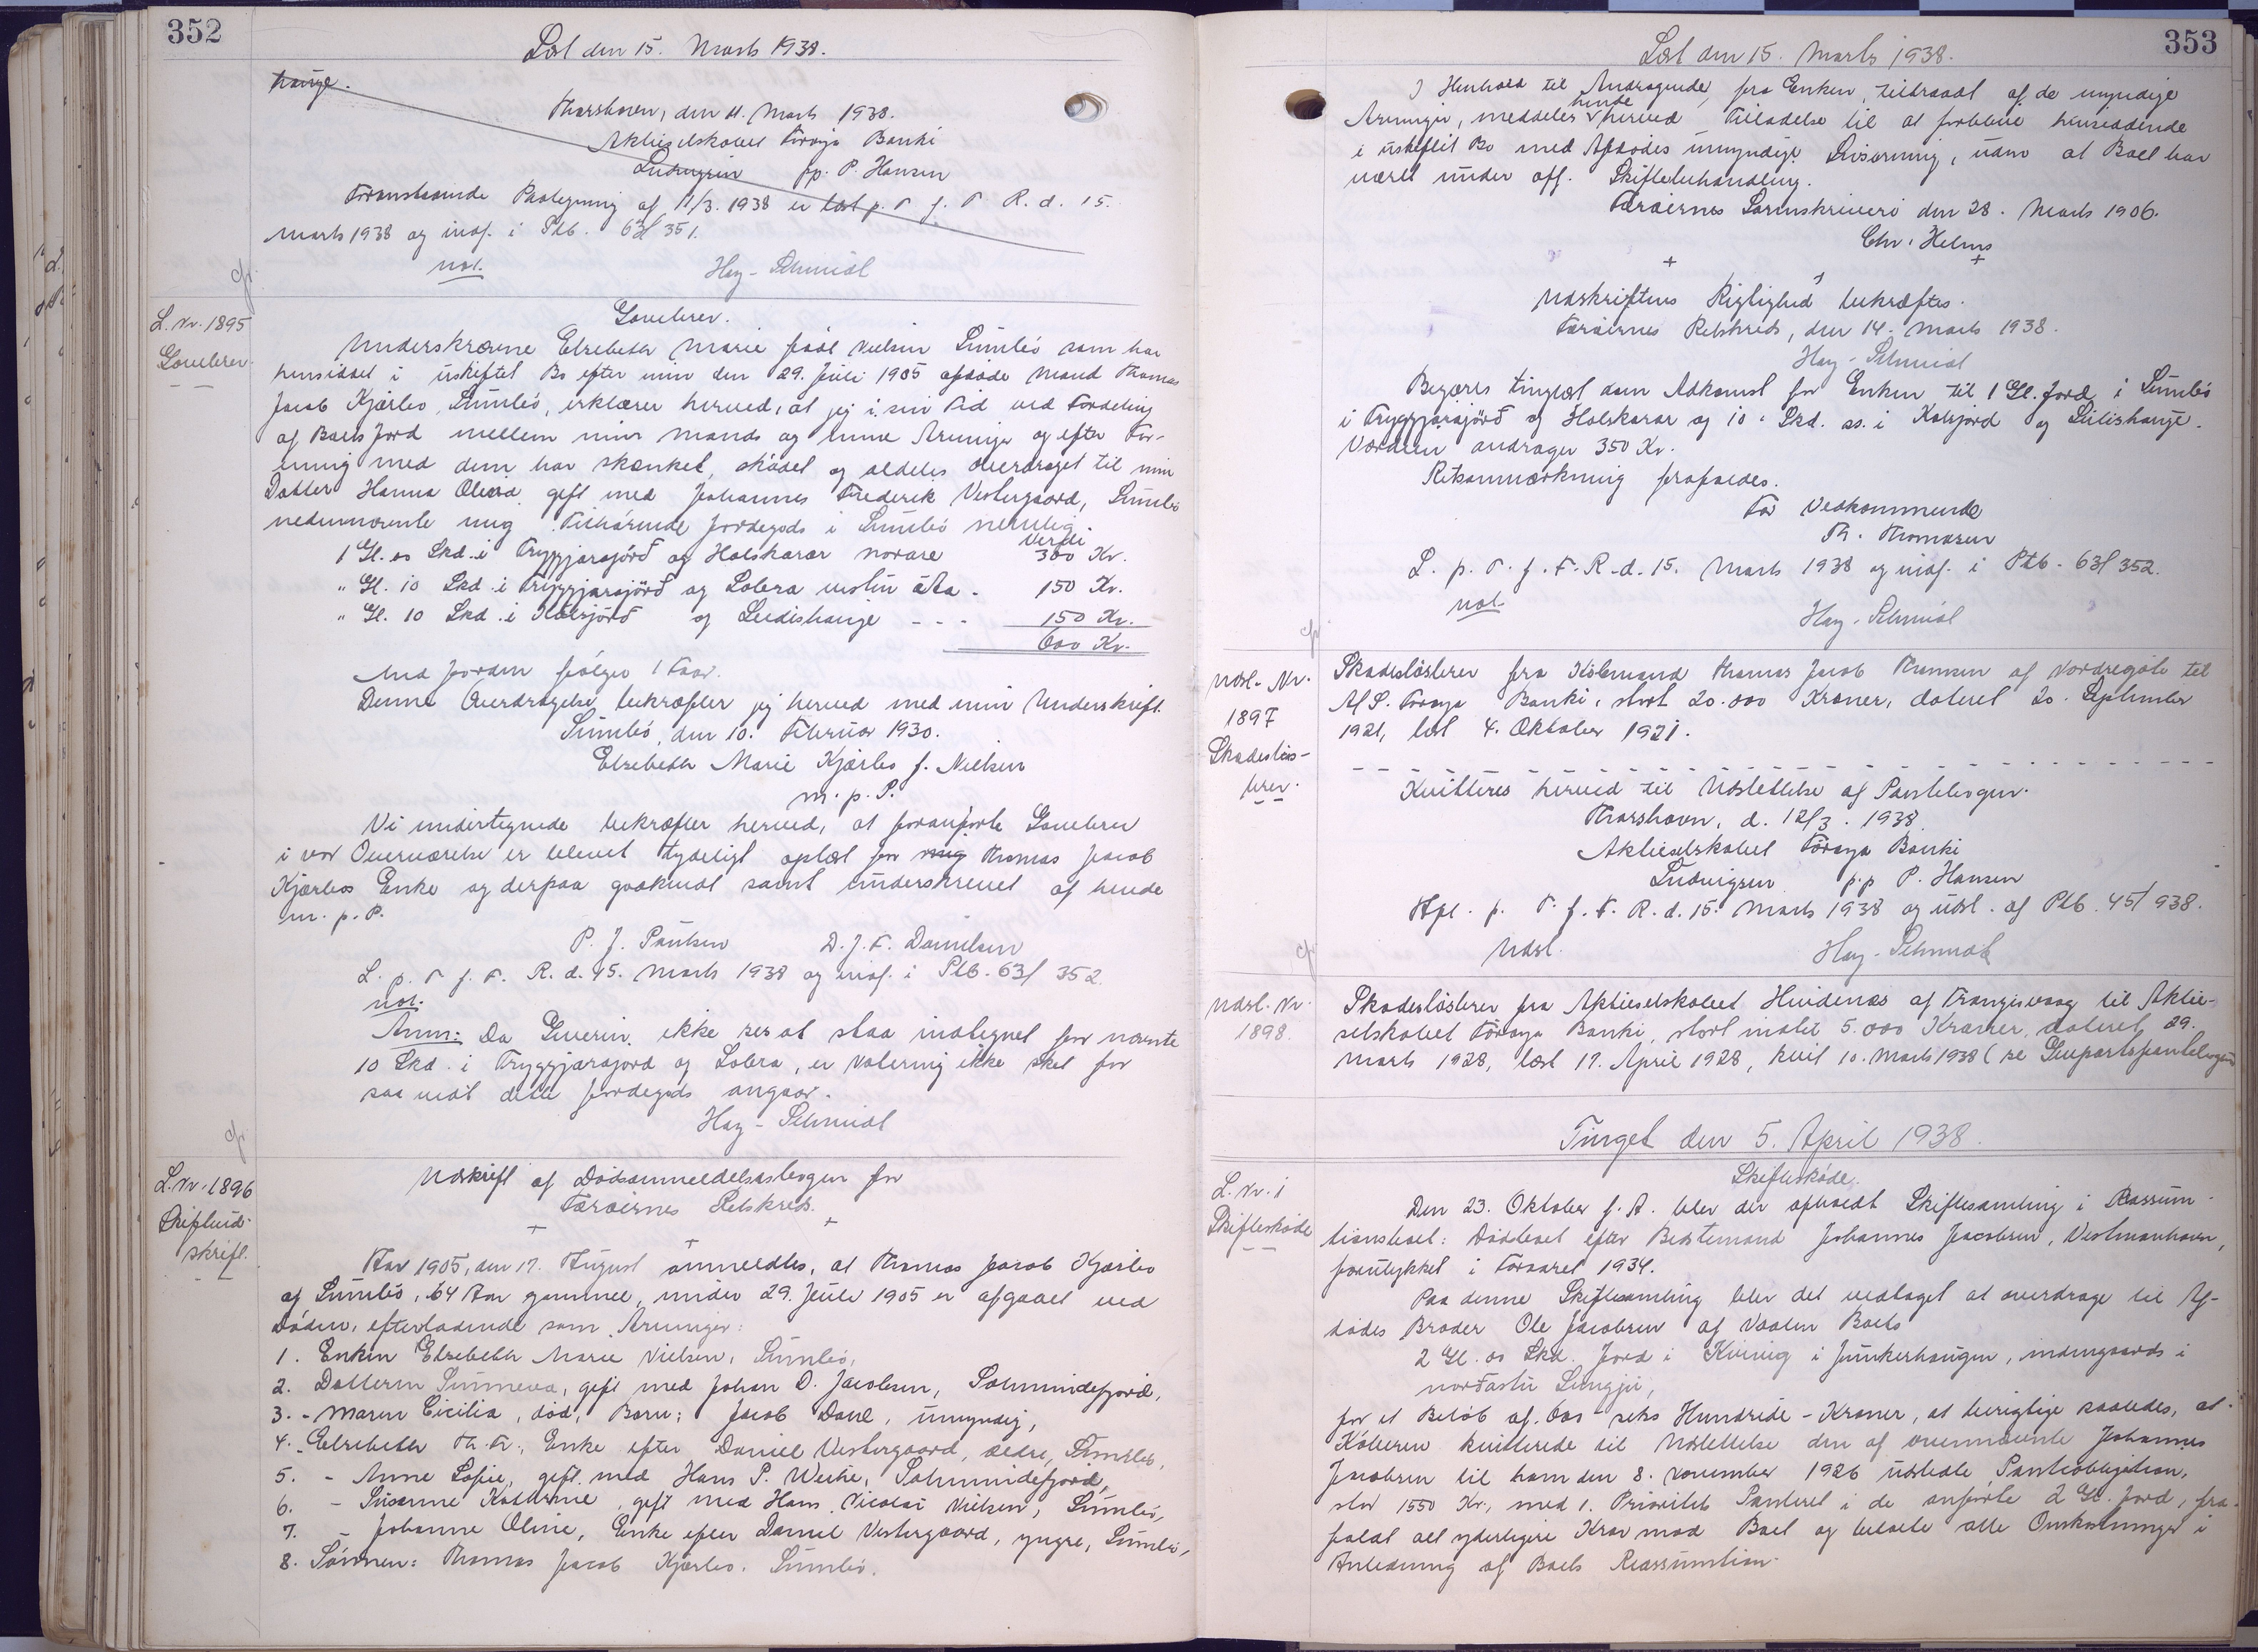 352
Læst den 15. Marts 1938.
hauge.
Thorshavn, den 11. Marts 1938.
Aktieselskabet Føroya Banki
Ludvigsen pp. P. Hansen
Foranstaaende Paategning af 11/3. 1938 er læst p. T. f. F. R. d. 15.
Marts 1938 og indf. i Ptb. 63/ 351.
not.
Hay-Schmidt
cfr.
L. Nr. 1895
Gavebrev.
Gavebrev.
Underskrevne Elsebeth Marie født Nielsen Sumbø som har
hensiddet i uskiftet Bo efter min den 29. Juli 1905 afdøde Mand Thomas
Jacob Kjærbo, Sumbø, erklærer herved, at jeg i sin Tid ved Fordeling
af Boets Jord mellem min Mands og mine Arvinger og efter For-
ening med dem har skænket, skødet og aldeles overdraget til min
Datter Hanna Olevia gift med Johannes Frederik Vestergaard, Sumbø
nedennævnte mig tilhørende Jordegods i Sumbø nemlig.
Verdi
1 Gl. oo Skd. i Tryggjarsjörð og Halskarar norare 300 Kr.
" Gl. 10 Skd. i Tryggjarsjörð og Lobra vestin áÍta - 150 Kr.
" Gl. 10 Skd. i Kálvsjörð og Leidishauje - - - 150 Kr.
600 Kr.
Med Jorden følger 1 Faar.
Denne Overdragelse bekræfter jeg herved med min Underskrift.
Sumbø, den 10. Februar 1930.
Elsebeth Marie Kjærbo f. Nielsen
m. p. P.
Vi undertegnede bekræfter herved, at foranførte Gavebrev
i vor Overværelse er blevet tydeligt oplæst for mig Thomas Jacob
Kjærbos Enke og derpaa godkendt samt underskrevet af hende
m. p. P.
P. J. Poulsen D. J. F. Danielsen
L. p. T. f. F. R. d. 15. Marts 1938 og indf. i Ptb. 63/ 352.
not.
Anm: Da Giverin. ikke ses at staa indtegnet for nævnte
10 Skd. i Tryggjarsjord og Lobra, er Notering ikke sket for
saa vidt dette Jordegods angaar.
Hay-Schmidt
cfr.
L. Nr. 1896
Skifteud-
skrift.
Udskrift af Dødsanmeldelsesbogen for
Færøernes Retskreds.
Aar 1905, den 17. August anmeldtes, at Thomas Jacob Kjærbo
af Sumbø, 64 Aar gammel, under 29. Juli 1905 er afgaaet ved
Døden, efterladende som Arvinger:
1. Enken Elsebeth Marie Nielsen, Sumbø,
2. Datteren Sunneva, gift med Johan D. Jacobsen, Sohmundefjord,
3. - Maren Cicilia, død, Barn: Jacob Dahl, umyndig,
4. - Elsebeth Th. Fr., Enke efter Daniel Vestergaard, ældre, Sumbø,
5. - Anne Sofie, gift med Hans P. Weihe, Sohmundefjord,
6. - Susanne Katherine, gift med Hans Nicolai Nielsen, Sumbø,
7. - Johanne Oline, Enke efter Daniel Vestergaard, yngre, Sumbø,
8. Sønnen: Thomas Jacob Kjærbo, Sumbø.
353
Læst den 15. Marts 1938.
I Henhold til Andragende fra Enken, tiltraadt af de myndige
Arvinger, meddeles hende herved Tilladelse til at forblive hensiddende
i uskiftet Bo med Afdødes umyndige Livsarving, uden at Boet har
været under off. Skiftebehandling.
Færøernes Sorenskriveri den 28. Marts 1906.
Chr. Helms
Udskriftens Rigtighed bekræftes.
Færøernes Retskreds, den 14. Marts 1938.
Hay-Schmidt
Begæres tinglæst som Adkomst for Enken til 1 Gl. Jord i Sumbø
i Tryggjarsjörð og Halskarar og 10 Skd. ss. i Kalvsjord og Leidishauje.
Værdien andrager 350 Kr.
Retsanmærkning frafaldes.
For Vedkommende
Th. Thomasen
L. p. T. f. F. R. d. 15. Marts 1938 og indf. i Ptb. 63/ 352.
not.
Hay-Schmidt
cfr.
Udsl. Nr.
1897
Skadesløs-
brev.
Skadesløsbrev fra Købmand Thomas Jacob Thomsen af Nordregøte til
A/S. Føroya Banki, stort 20.000 Kroner, dateret 20. September
1921, læst 4. Oktober 1921.
Kvitteres herved til Udslettelse af Pantebogen.
Thorshavn, d. 12/3. 1938.
Aktieselskabet Føroya Banki
Ludvigsen p.p P. Hansen
Afl. p. T. f. F. R. d. 15. Marts 1938 og udsl. af Ptb. 45/ 938.
Udsl.
Hay-Schmidt
cfr.
Udsl. Nr.
1898.
Skadesløsbrev fra Aktieselskabet Hvidenæs af Trangisvaag til Aktie-
selskabet Føroya Banki, stort indtil 5.000 Kroner, dateret 29.
Marts 1928, læst 17. April 1928, kvit 10. Marts 1938 (se Genpartspantebogen
Tinget den 5. April 1938.
L. Nr. 1
Skifteskøde
Skifteskøde.
Den 23. Oktober f. A. blev der afholdt Skiftesamling i Reassum-
tionsboet: Dødsboet efter Bestemand Johannes Jacobsen, Vestmanhavn,
forulykket i Foraaret 1934.
Paa denne Skiftesamling blev det vedtaget at overdrage til Af-
dødes Broder Ole Jacobsen af Vaalen Boets
2 Gl. oo Skd. Jord i Kvivig i Junkerhaugen, indengaards i
norðastu Lungju,
for et Beløb af 600 - seks Hundrede - Kroner, at berigtige saaledes, at
Køberen kvitterede til Udslettelse den af ovennævnte Johannes
Jacobsen til ham den 8. November 1926 udstedte Panteobligation,
stor 1550 Kr., med 1. Prioritets Panteret i de anførte 2 Gl. Jord, fra-
faldt alt yderligere Krav mod Boet og betalte alle Omkostninger i
Anledning af Boets Reassumtion.